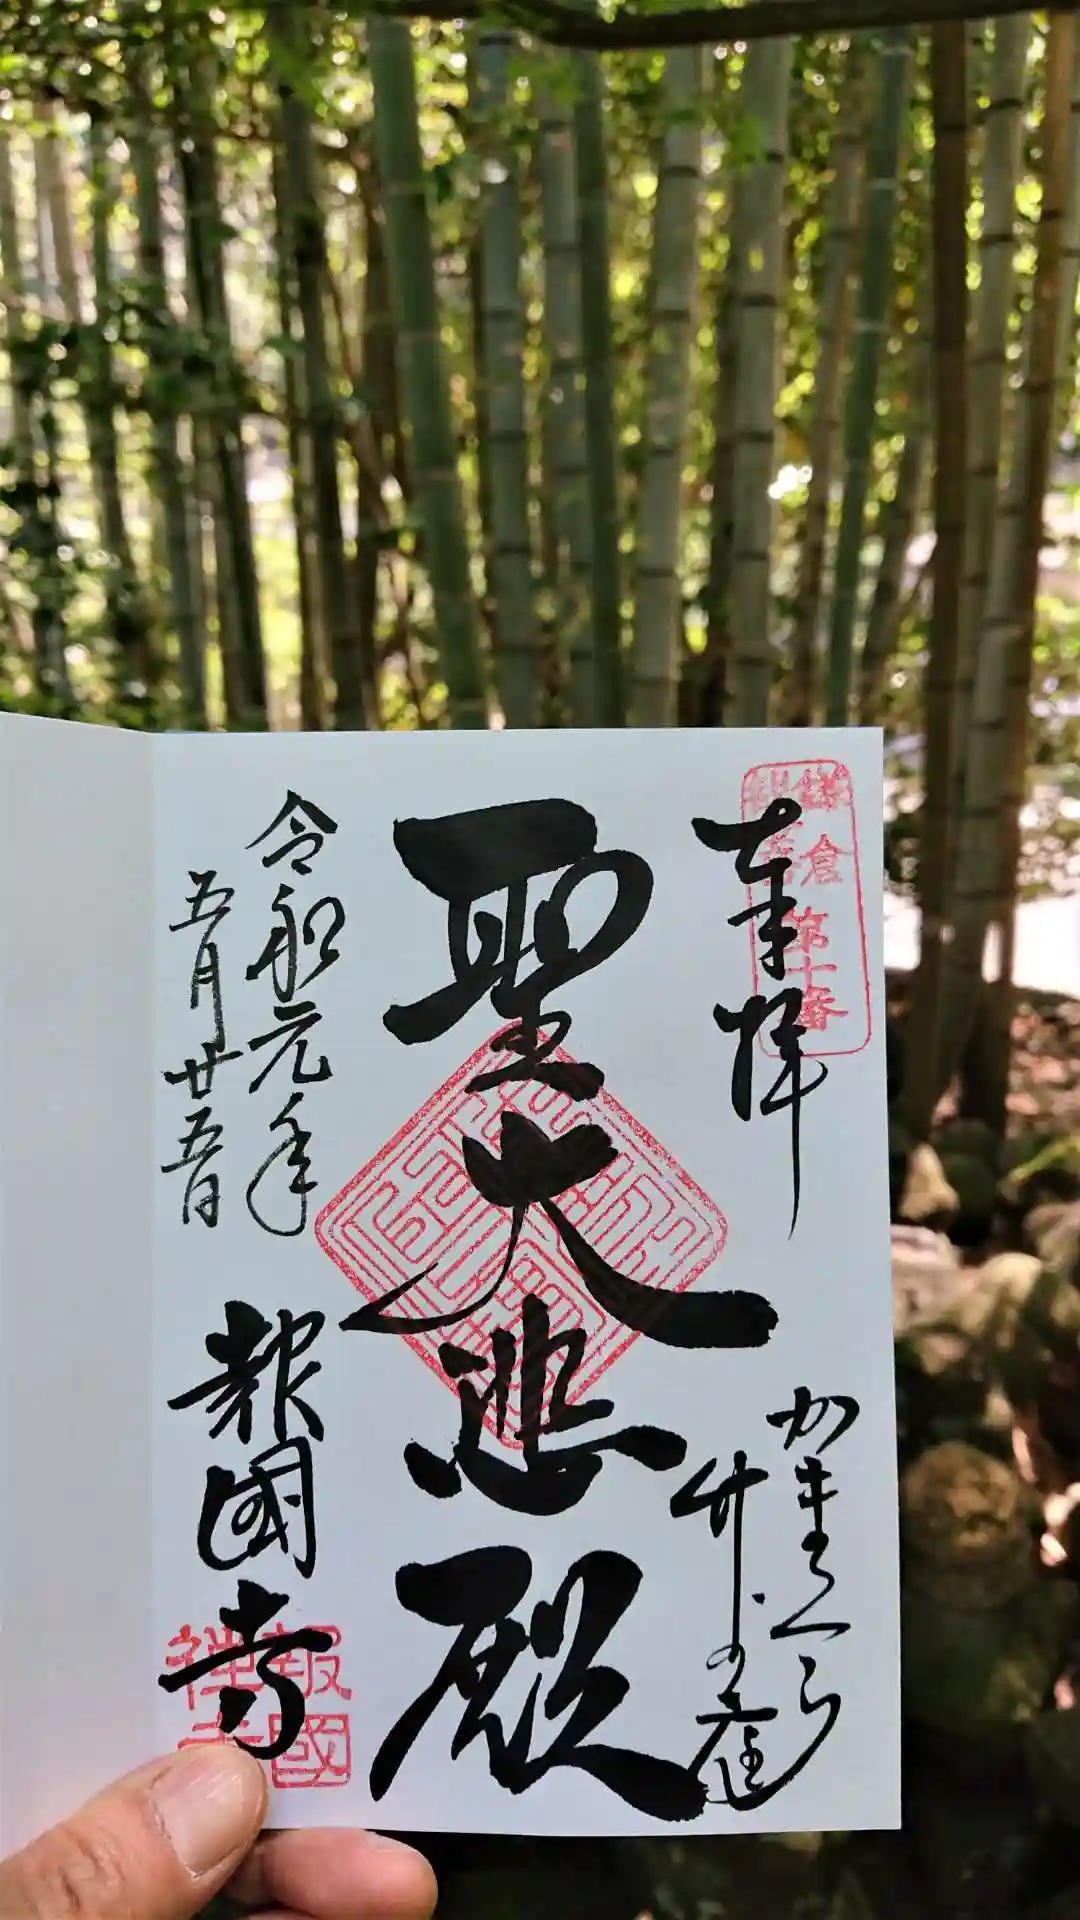 奉拝
鎌倉
第十番
かまくら
竹の庭
聖大悲殿
令和元年
五月廿五日
報國寺
報國
禅寺